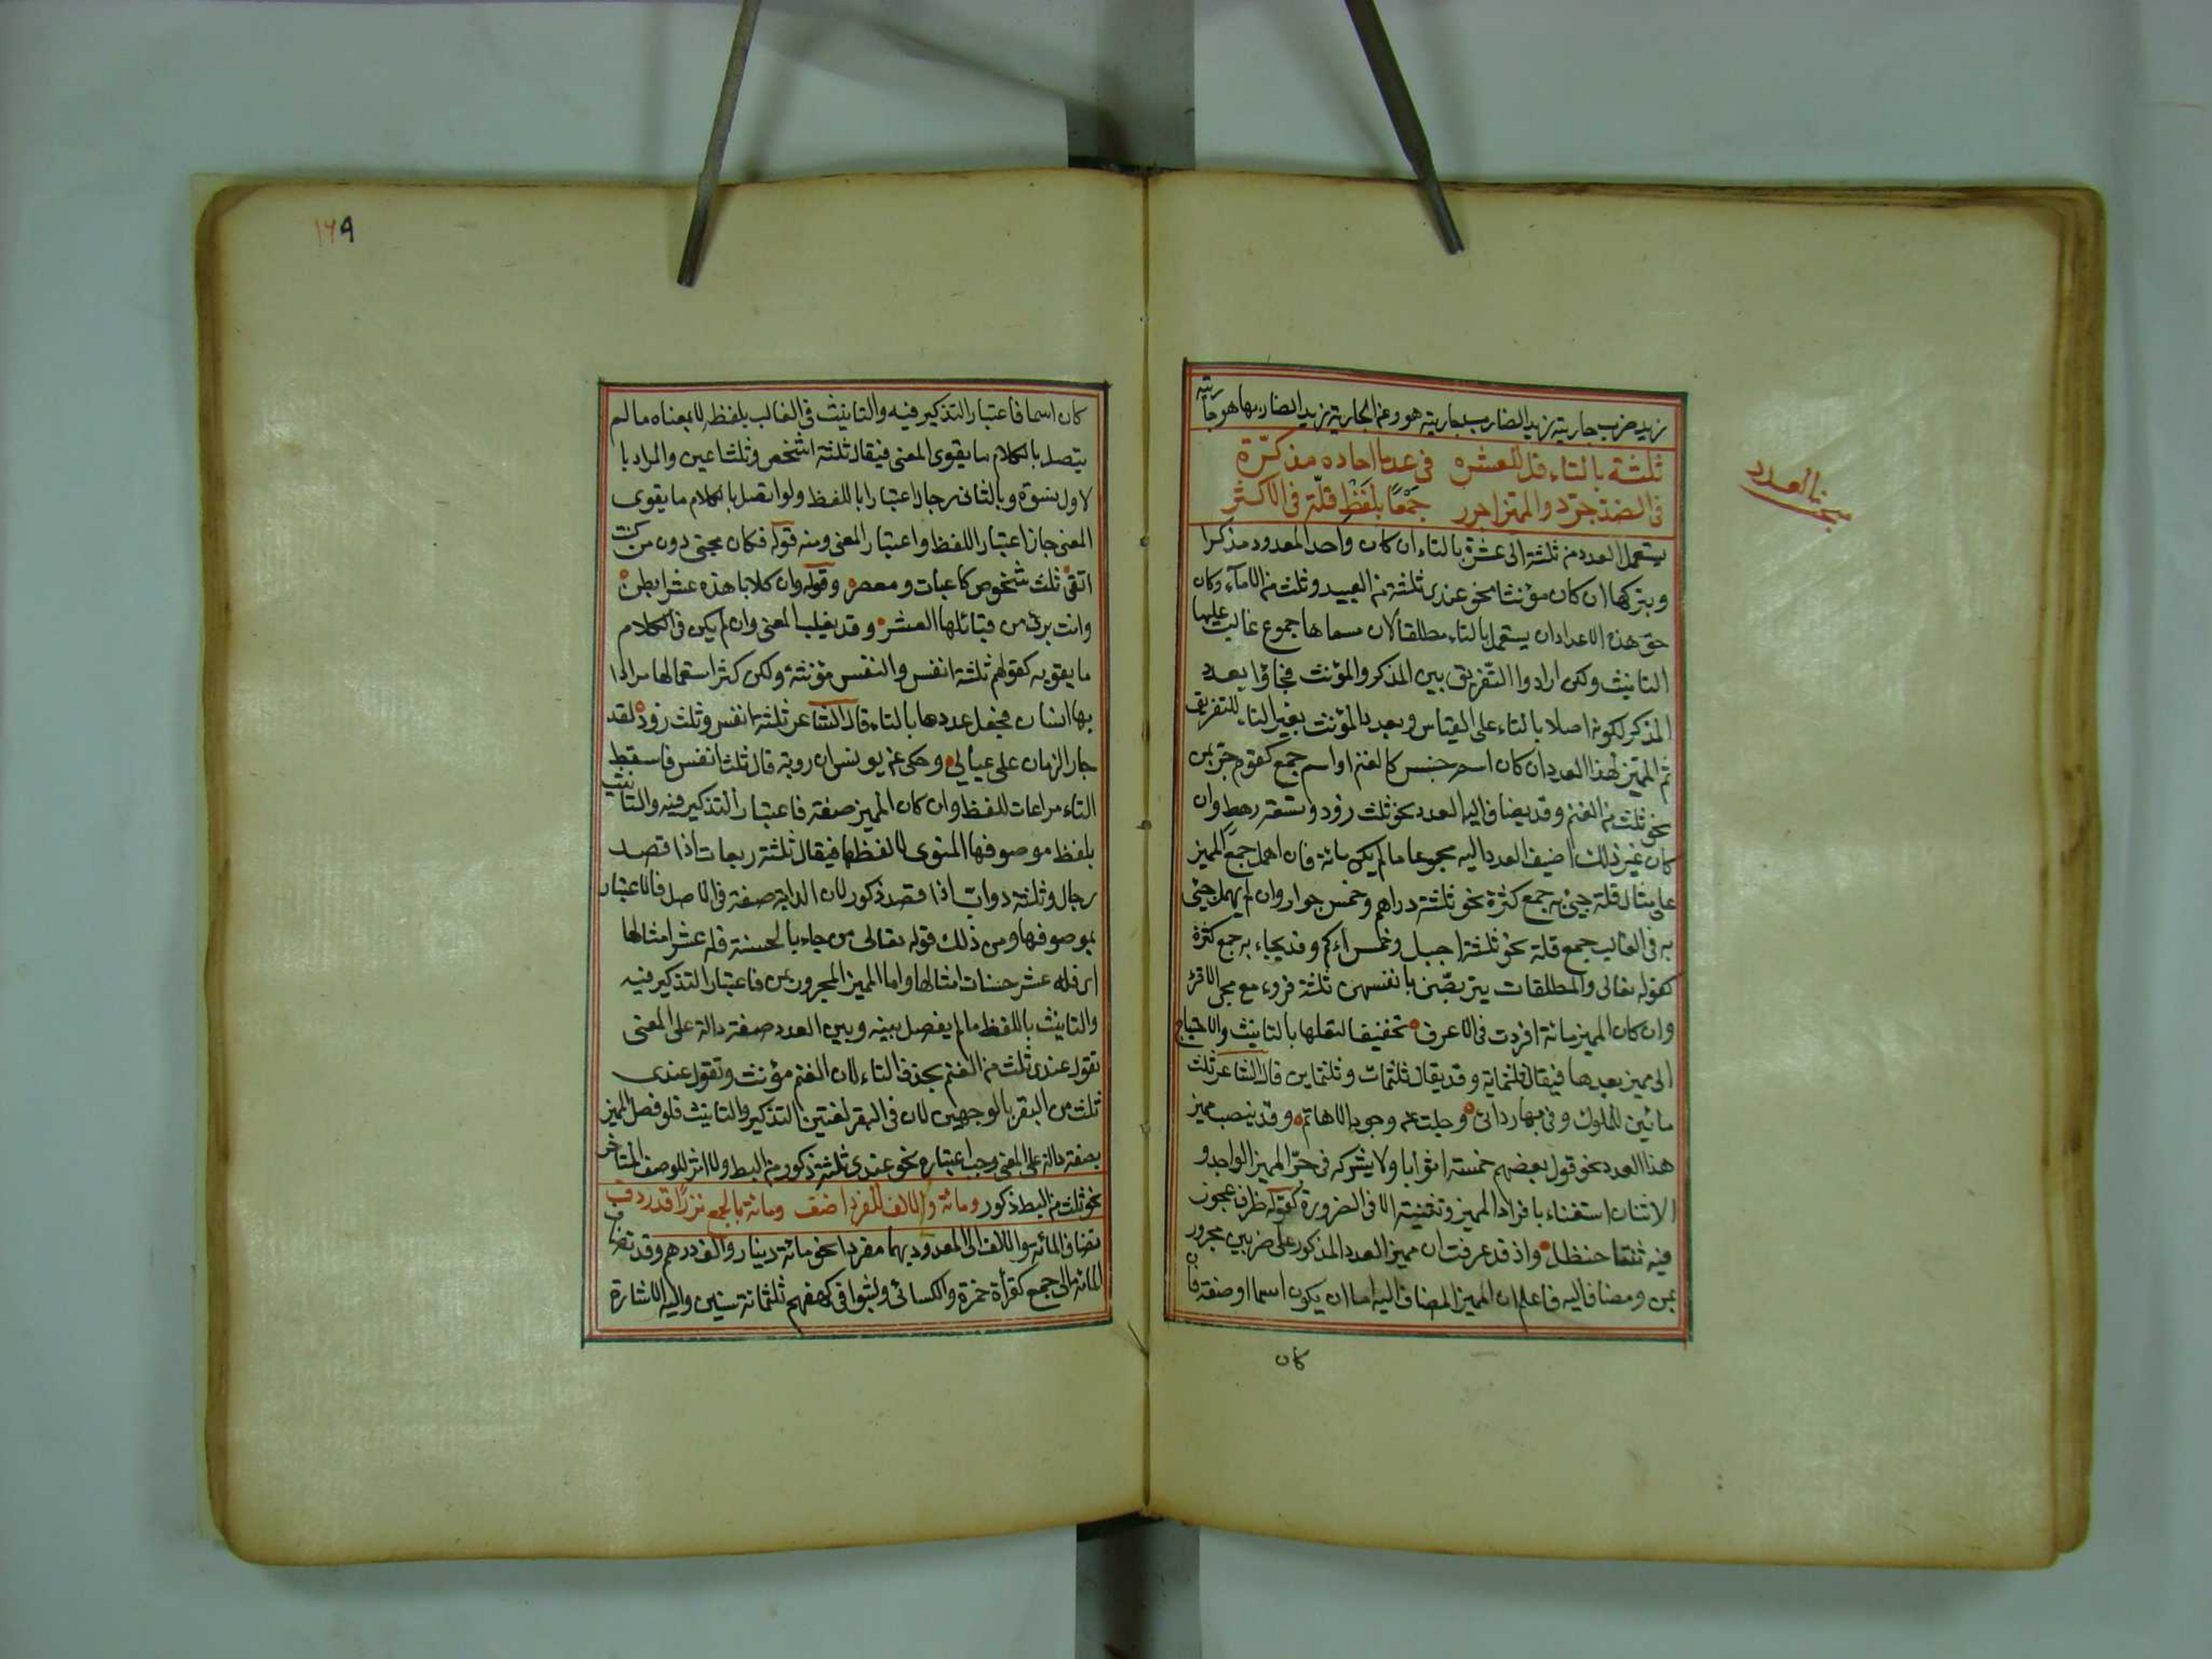 زيد ضرب جاريته زيد الضارب جاريته هو وعن الجارية زيد الضاربها هو جاريته
مبحث العدد
ثلثة بالتاء قل للعشره في عد ما احاده مذكّرة
في الضد جرّد والمميز اجرر جمعًا بلفظ قلّة في الاكثر
يستعمل العدد من ثلثة الى عشرة بالتاء ان كان واحد المعدود مذكرا
وبتركها ان كان مؤنثا نحو عندي ثلثة من العبيد وثلث من الامآء وكان
حق هذه الاعداد ان يستعمل بالتاء مطلقا لان مسماها جموع غالبت عليها
التانيث ولكن ارادوا التّفريق بين المذكر والمؤنث فجاؤا بعدد
المذكر لكونه اصلا بالتاء على القياس وبعدد المؤنث بغير التاء للتفريق
ثم المميّز لهذا العدد ان كان اسم جنس كالغنم او اسم جمع كقوم جرّ بمن
نحو ثلث من الغنم وقد يضاف اليه العدد نحو ثلث زود وتسعة رهط وان
كان غير ذلك اضيف العدد اليه مجموعا ما لم يكن مائة فان اهمل جمع المميز
على مثال قلة جئ به جمع كثرة نحو ثلثة دراهم وخمس جوار وان لم يهمل جئ
به في الغالب جمع قلة نحو ثلثة اجبل وخمس اءكم وقد يجاء به جمع كثرة
كقوله تعالى والمطلقات يتربصّن بانفسهن ثلثة قروء مع مجئ الاقرؤ
وان كان المميز مائة افردت في الاعرف تخفيفا لثقلها بالتانيث والاحتياج
الى مميز بعدها فيقال ثلثماية وقد يقال ثلثمات وثلثماين قال الشاعر ثلث
مائين للملوك وفى بها ردائى وجلت عن وجوه الاهاتم وقد ينصب مميز
هذا العدد نحو قول بعضهم خمسة اثوابا ولا يشركه في جرّ المميز الواحد و
الاثنان استغناء بافراد المميز وتثنيته الا في الضرورة كقوله ظرف عجوز
فيه ثنتا حنظل واذ قد عرفت ان مميز العدد المذكور على ضربين مجرور
بمن ومضاف اليه فاعلم ان المميز المضاف اليه اما ان يكون اسما او صفة فان
كان
١٦٩
كان اسما فاعتبار التذكير فيه والتانيث في الغالب بلفظه لا بمعناه ما لم
يتصل بالكلام ما يقوى المعنى فيقال ثلثة اشخص وثلث اعين والمراد با
لاول نسوة وبالثاني رجال اعتبارا باللفظ ولو اتصل بالكلام ما يقوى
المعنى جاز اعتبار اللفظ واعتبار المعنى ومنه قوله فكان مجنى دون من كنت
اتقى ثلث شخوص كاعبات ومعصر وقوله وان كلابا هذه عشر ابطن
وانت برئ من قبائلها العشر وقد يغلب المعنى وان لم يكن في الكلام
ما يقويه كقولهم ثلثة انفس والنفس مؤنثة ولكن كثر استعمالها مرادا
بها انسان فجعل عددها بالتاء قال الشاعر ثلثة انفس وثلث زود لقد
جار الزمان على عيالي وحكى عن يونس ان روبة قال ثلث انفس فاسقط
التاء مراعات للفظ وان كان المميز صفة فاعتبار التذكير فيه والتانيث
بلفظ موصوفها المنوى لا لفظها فيقال ثلثة ربعات اذا قصد
رجال وثلثة دوابّ اذا قصد ذكور لان الدابة صفة في الاصل فالاعتبار
بموصوفها ومن ذلك قوله تعالى من جاء بالحسنة فله عشر امثالها
اى فله عشر حسنات امثالها واما المميز المجرور بمن فاعتبار التذكير فيه
والتانيث باللفظ ما لم يفصل بينه وبين العدد صفة دالة على المعنى
تقول عندى ثلث من الغنم بحذف التاء لان الغنم مؤنث وتقول عندى
ثلث من البقر بالوجهين لان في البقر لغتين التذكير والتانيث فلو فصل المميز
بصفة دالة على المعنى وجب اعتباره نحو عندى ثلثة ذكور من البط ولا اثر للوصف المتاخر
نحو ثلث من البط ذكور ومائة والالف للفرد اضف ومائة بالجمع نزرًا قد ردف
تضاف المائة والالف الى المعدود بهما مفردا نحو مائة دينار والف درهم وقد تضاف
المائة الى جمع كقرأة حمزة والكسائى ولبثوا في كهفهم ثلثمائة سنين واليه الاشارة